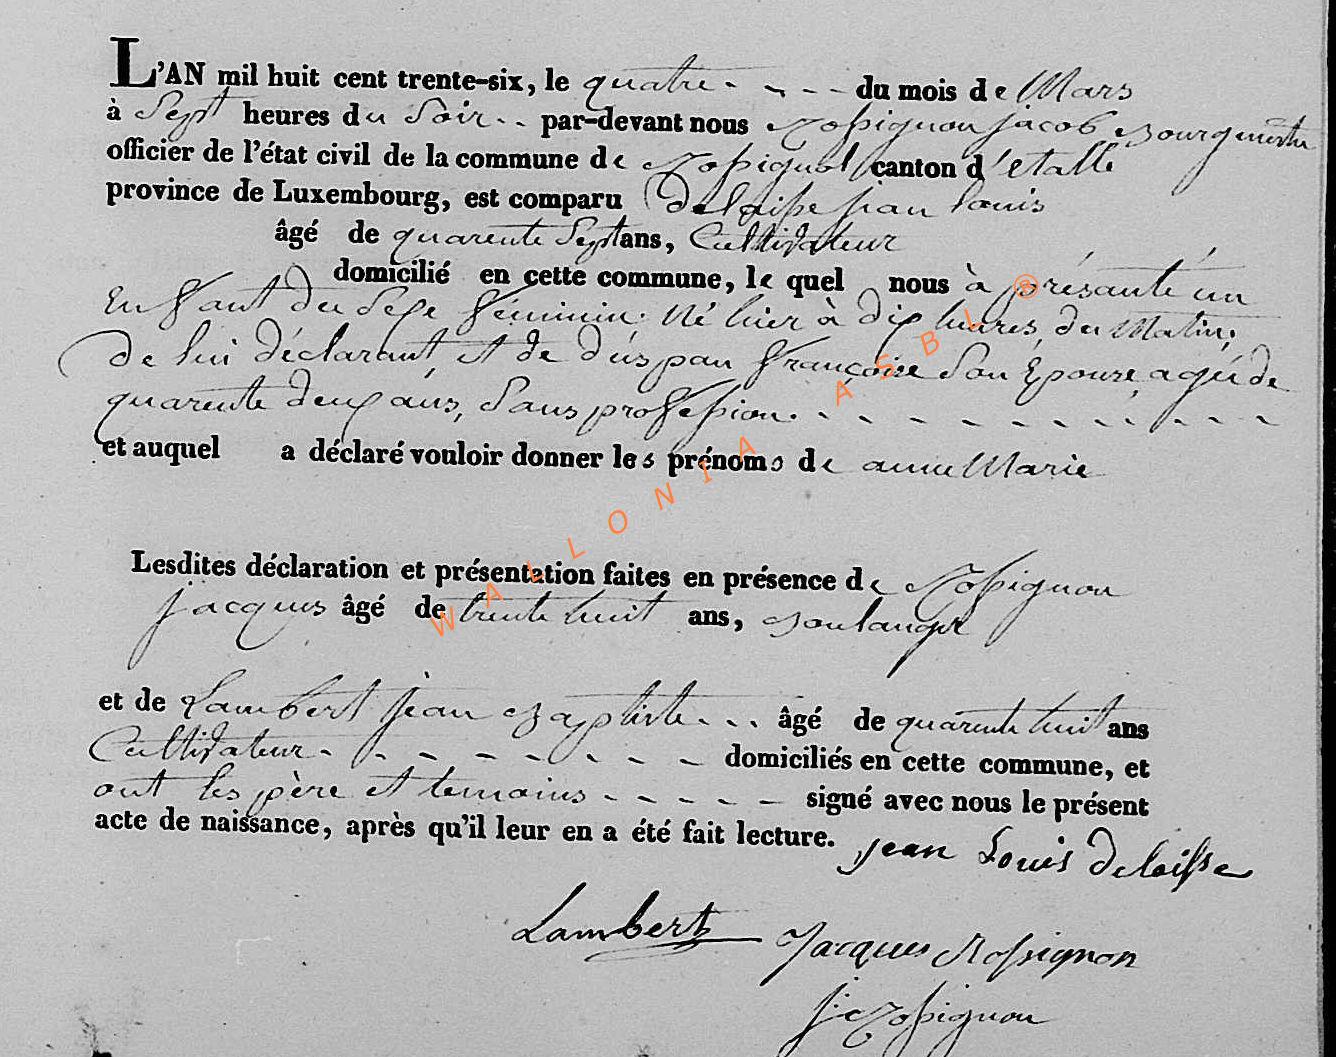 L'AN mil huit cent trente-six, le quatre - - - - du mois de Mars
à Sept heures du Soir - - par-devant nous Rossignon jacob Bourguemestre
officier de l'état civil de la commune de Rossignol canton d'etalle
province de Luxembourg, est comparu Delaisse jean Louis
âgé de quarente Sept ans, Cultivateur
domicilié en cette commune, le quel nous à présanté un
Enffant du Sexe féminin; Né hier à dix heures, du Matin;
de lui déclarant, et de françoise Son Epouse agée de
quarente deux ans, Sans proffession. - - - - - - - - - - -
et auquel a déclaré vouloir donner les prénoms de anne Marie
Lesdites déclaration et présentation faites en présence de Rossignon
jacques âgé de trente huit ans, Boulanger
et de Lambert jean Baptiste - - - âgé de quarente huit ans
Cultivateur - - - - - - - - domiciliés en cette commune, et
ont les père et temoins - - - - - signé avec nous le présent
acte de naissance, après qu'il leur en a été fait lecture. jean Louis Delaisse
Lambert Jacques Rossignon
j: Rossignon
WALLONIA ASBL ®